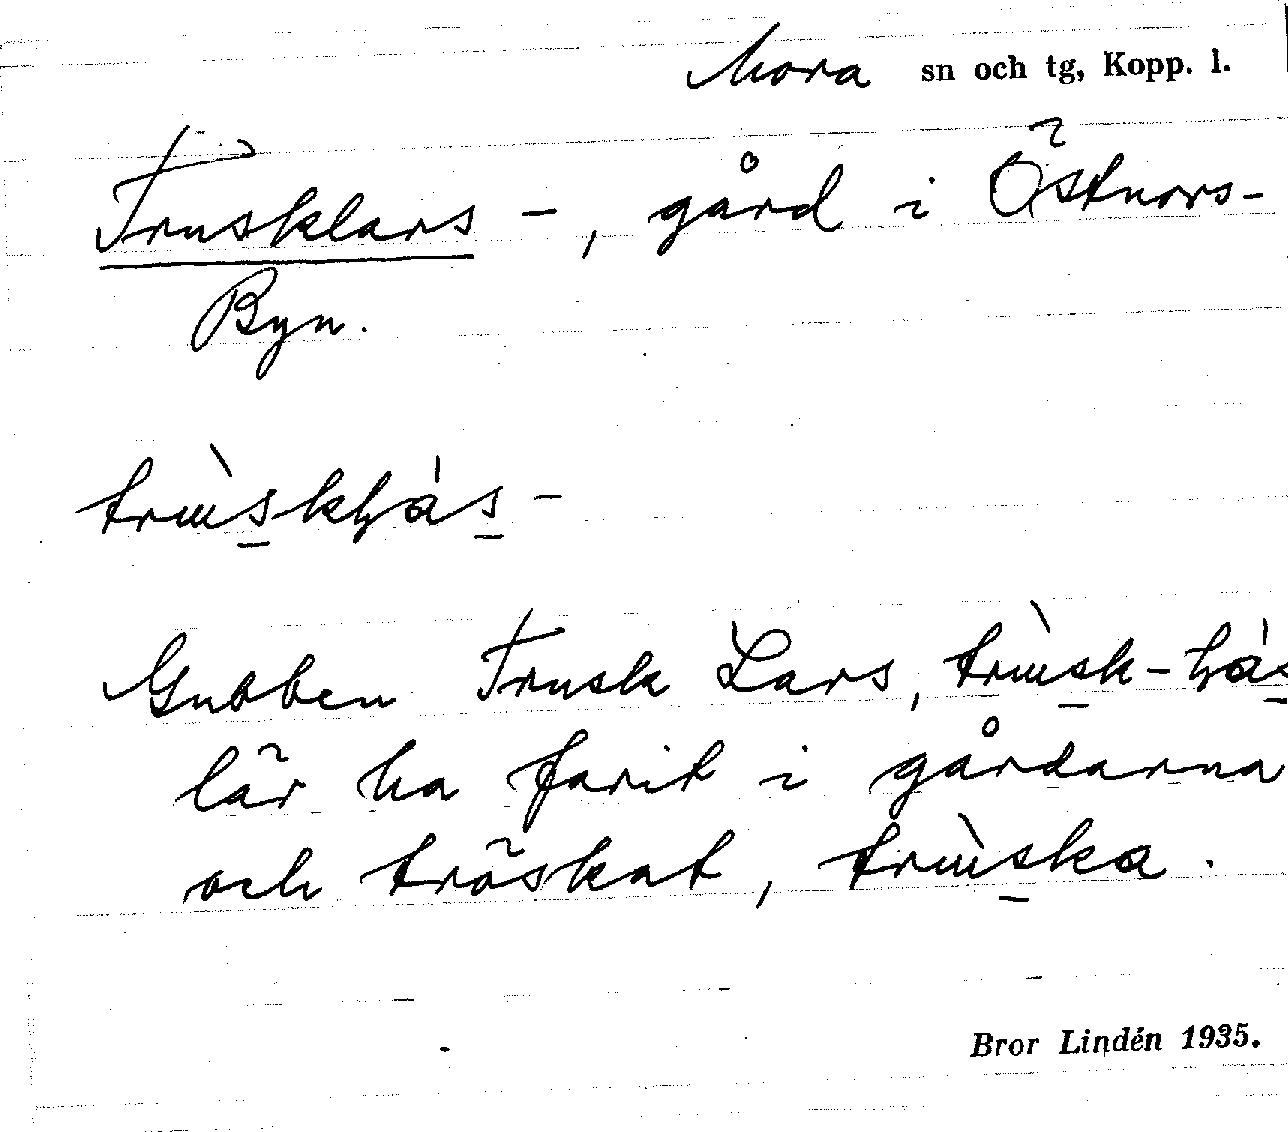 Mora sn och tg, Kopp. l.
Trusklars -, gård i Östnors-
Byn.
Gubben Trusk Lars,
lär ha farit i gårdarna
och tröskat,
Bror Lindén 1935.